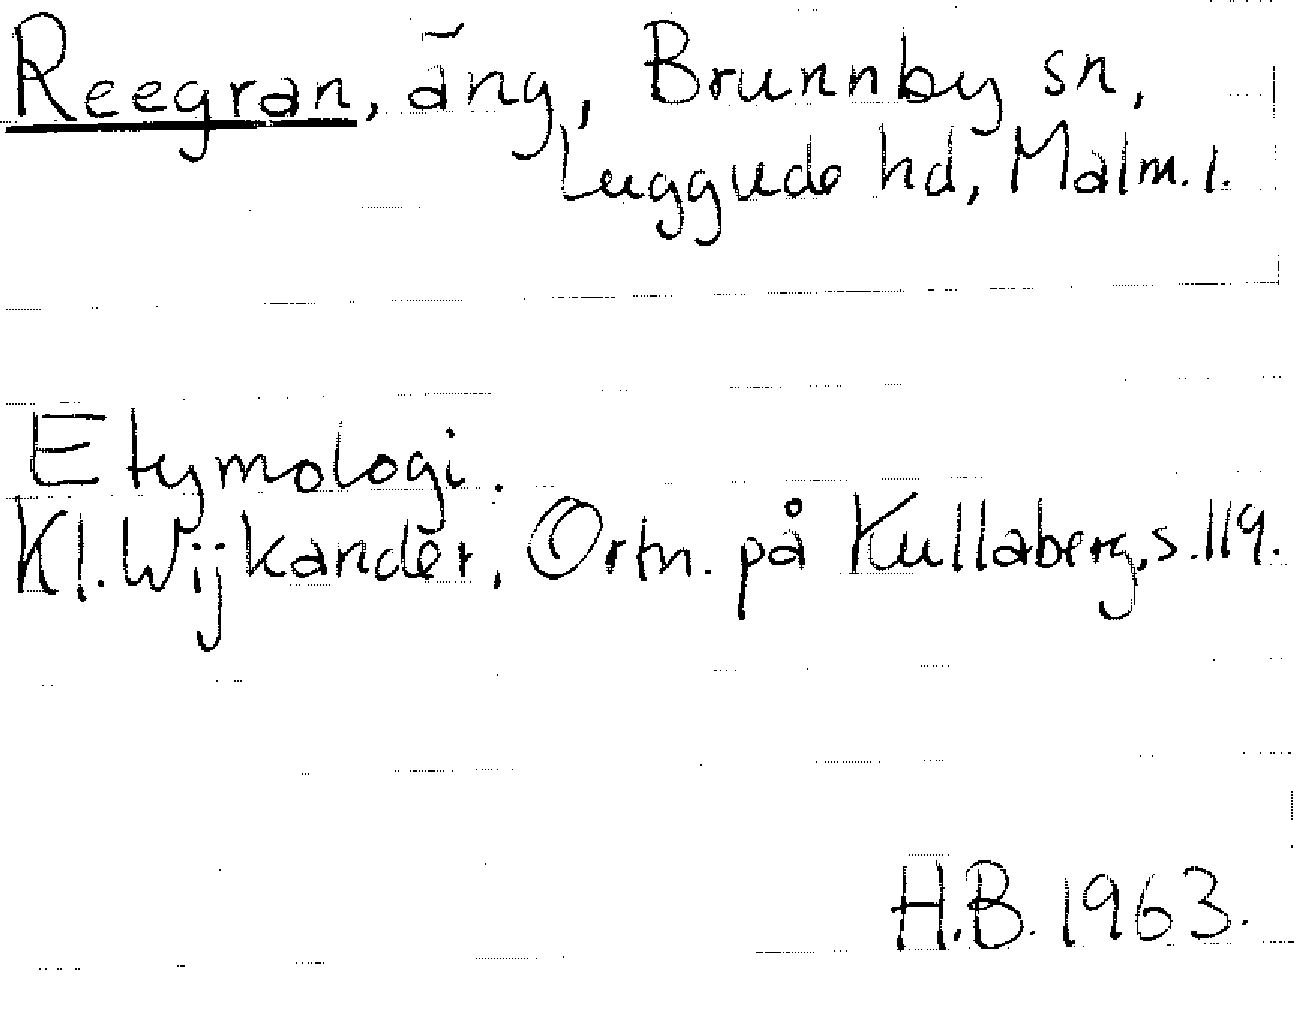 Reegran, äng, Brunnby sn,
Luggude hd, Malm. l.
Etymologi.
Kl. Wijkander, Ortn. på Kullaberg, s. 119.
H.B. 1963.